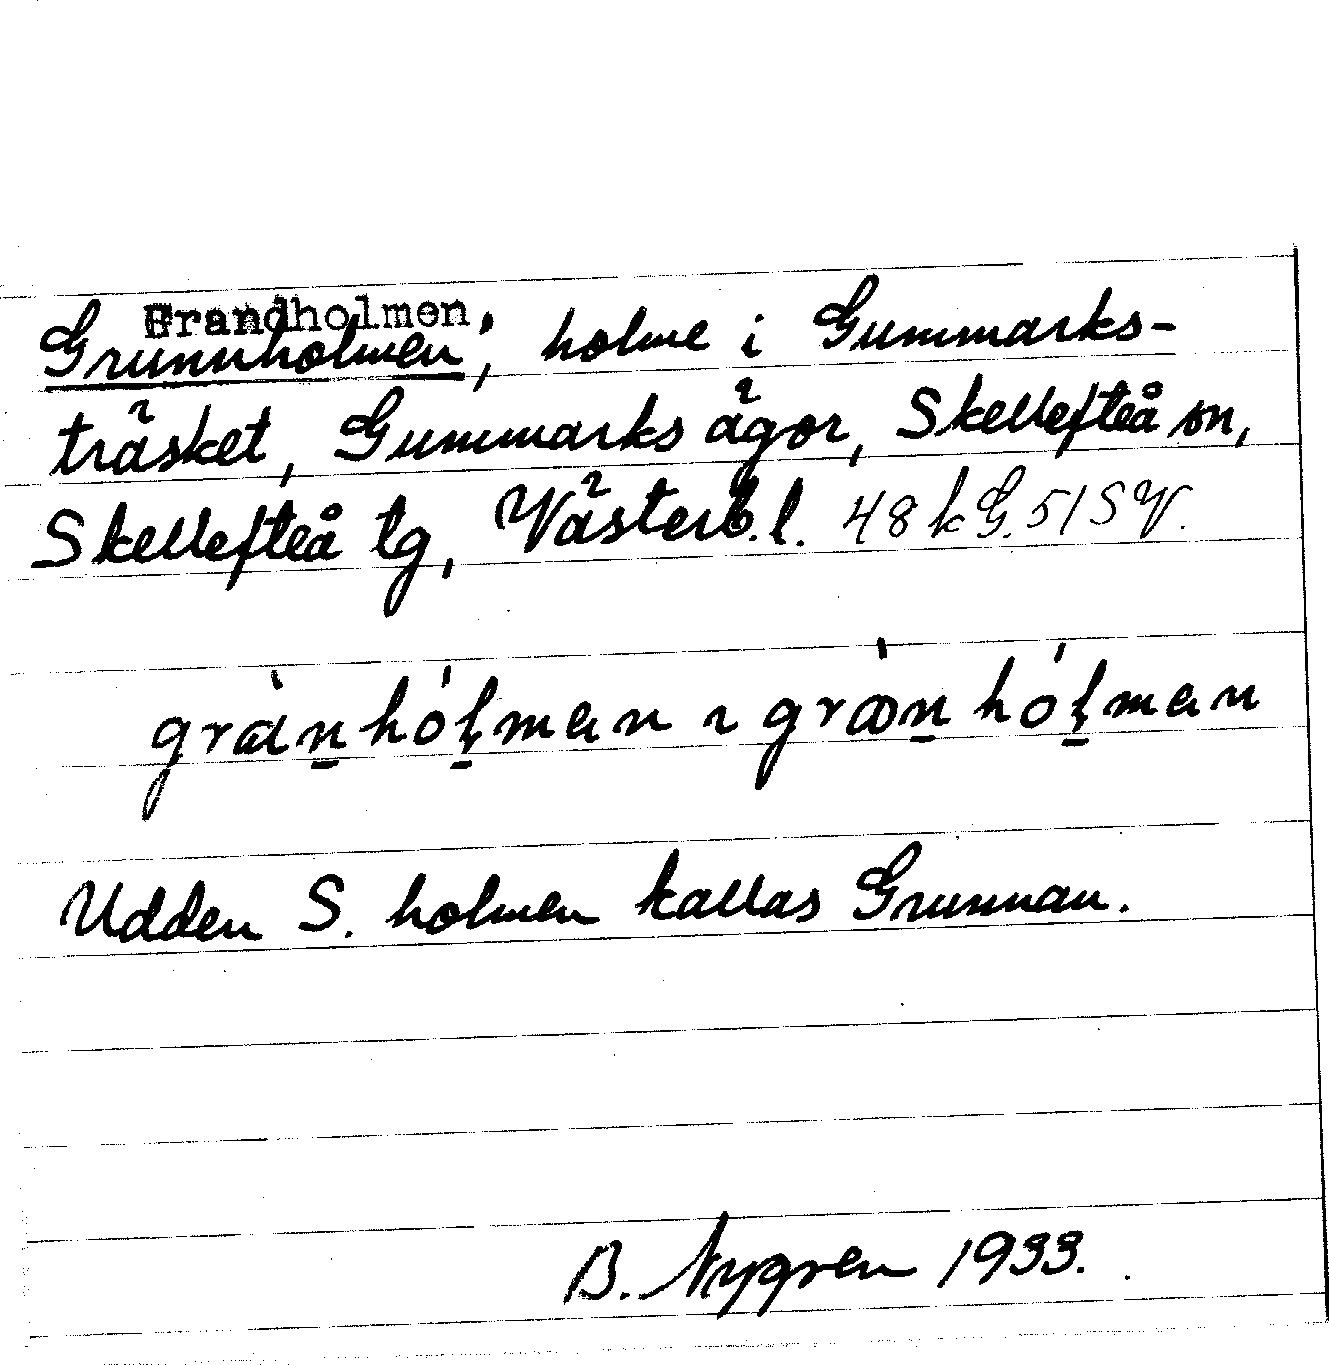 Grandholmen
Grunnholmen, holme i Gummarks-
träsket, Gummarks ägor, Skellefteå sn,
Skellefteå tg, Västerb. l. 48 k G. 51 SV.
gràn̠hól̠man ~ gròn̠hól̠man
Udden S. holmen kallas Grunnan.
B. Nygren 1933.